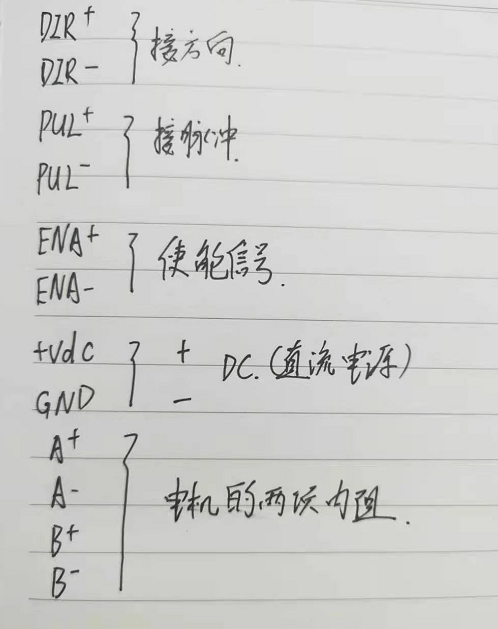 DIR+
DIR-
接方向.
PUL+
PUL-
接脉冲.
ENA+
ENA-
使能信号.
+Vdc
GND
+
-
DC.(直流电源)
A+
A-
B+
B-
电机的两项内阻.